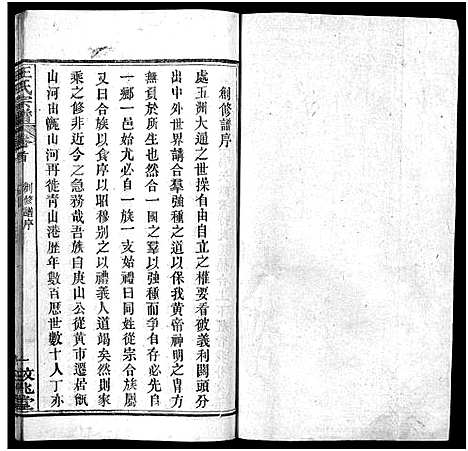 創修譜序
處五洲大通之世操有由自立之權要看破義利關頭分
出中外世界講合羣強種之道以保我黃帝神明之胄庶
無負於所生也然合一國之羣以強種而爭自存必先自
一鄉一邑始尤必自一族一支始禮曰同姓從宗合族屬
又曰合族以食序以昭穆别之以禮義人道竭矣然則家
乘之修非近今之急務哉吾族自庚山公從黃市遷居甑
山河由甑山河再徙青山港歷年數百歷世數十人丁亦
王氏宗譜
卷首
創修譜序
一
堂